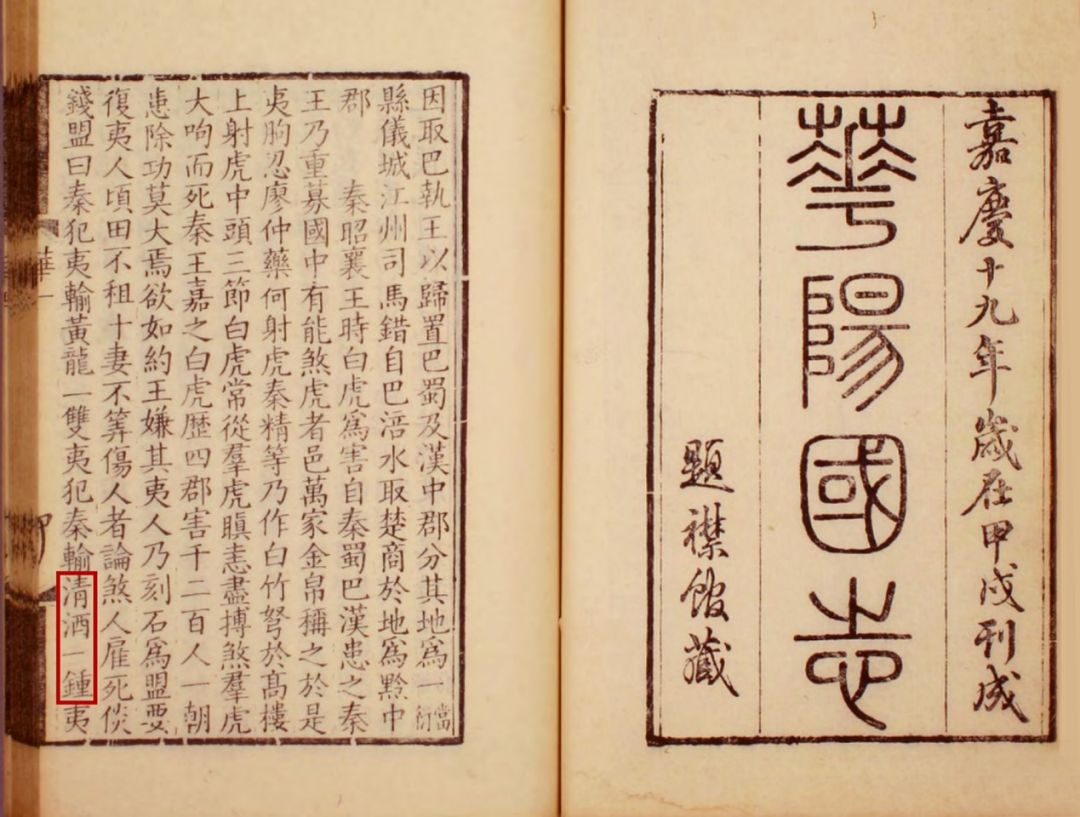 嘉慶十九年歲在甲戌刊成
華陽國志
題襟館藏
因取巴執王以歸置巴蜀及漢中郡分其地爲一當衍
縣儀城江州司馬錯自巴涪水取楚商於地爲黔中
郡　秦昭襄王時白虎爲害自秦蜀巴漢患之秦
王乃重募國中有能煞虎者邑萬家金帛稱之於是
夷朐忍廖仲藥何射虎秦精等乃作白竹弩於高樓
上射虎中頭三節白虎常從羣虎瞋恚盡搏煞羣虎
大呴而死秦王嘉之白虎歷四郡害千二百人一朝
患除功莫大焉欲如約王嫌其夷人乃刻石爲盟要
復夷人頃田不租十妻不筭傷人者論煞人雇死倓
錢盟曰秦犯夷輸黃龍一雙夷犯秦輸清酒一鍾夷
華一